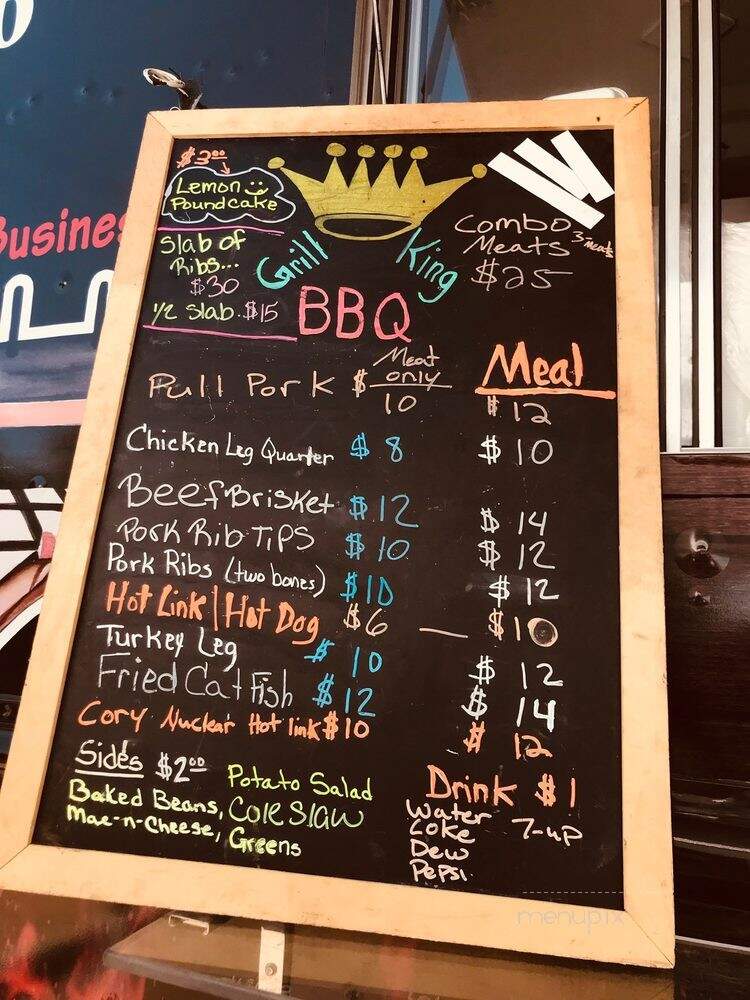 Busines
$3.00
Lemon
Poundcake
Slab of
Ribs...
$30
1/2 Slab. $15
Grill King
BBQ
Combo
Meats 3 meats
$25
Meat only
Meal
Pull Pork $ 10 $ 12
Chicken Leg Quarter $ 8 $ 10
Beef Brisket $ 12 $ 14
Pork Rib Tips $ 10 $ 12
Pork Ribs (two bones) $10 $ 12
Hot Link | Hot Dog $6 — $10
Turkey Leg $ 10 $ 12
Fried Cat Fish $ 12 $ 14
Cory Nuclear Hot link $10 $ 12
Sides $2.00
Potato Salad
Baked Beans, Cole Slaw
Mac-n-Cheese, Greens
Drink $1
Water
Coke 7-up
Dew
Pepsi
menupix